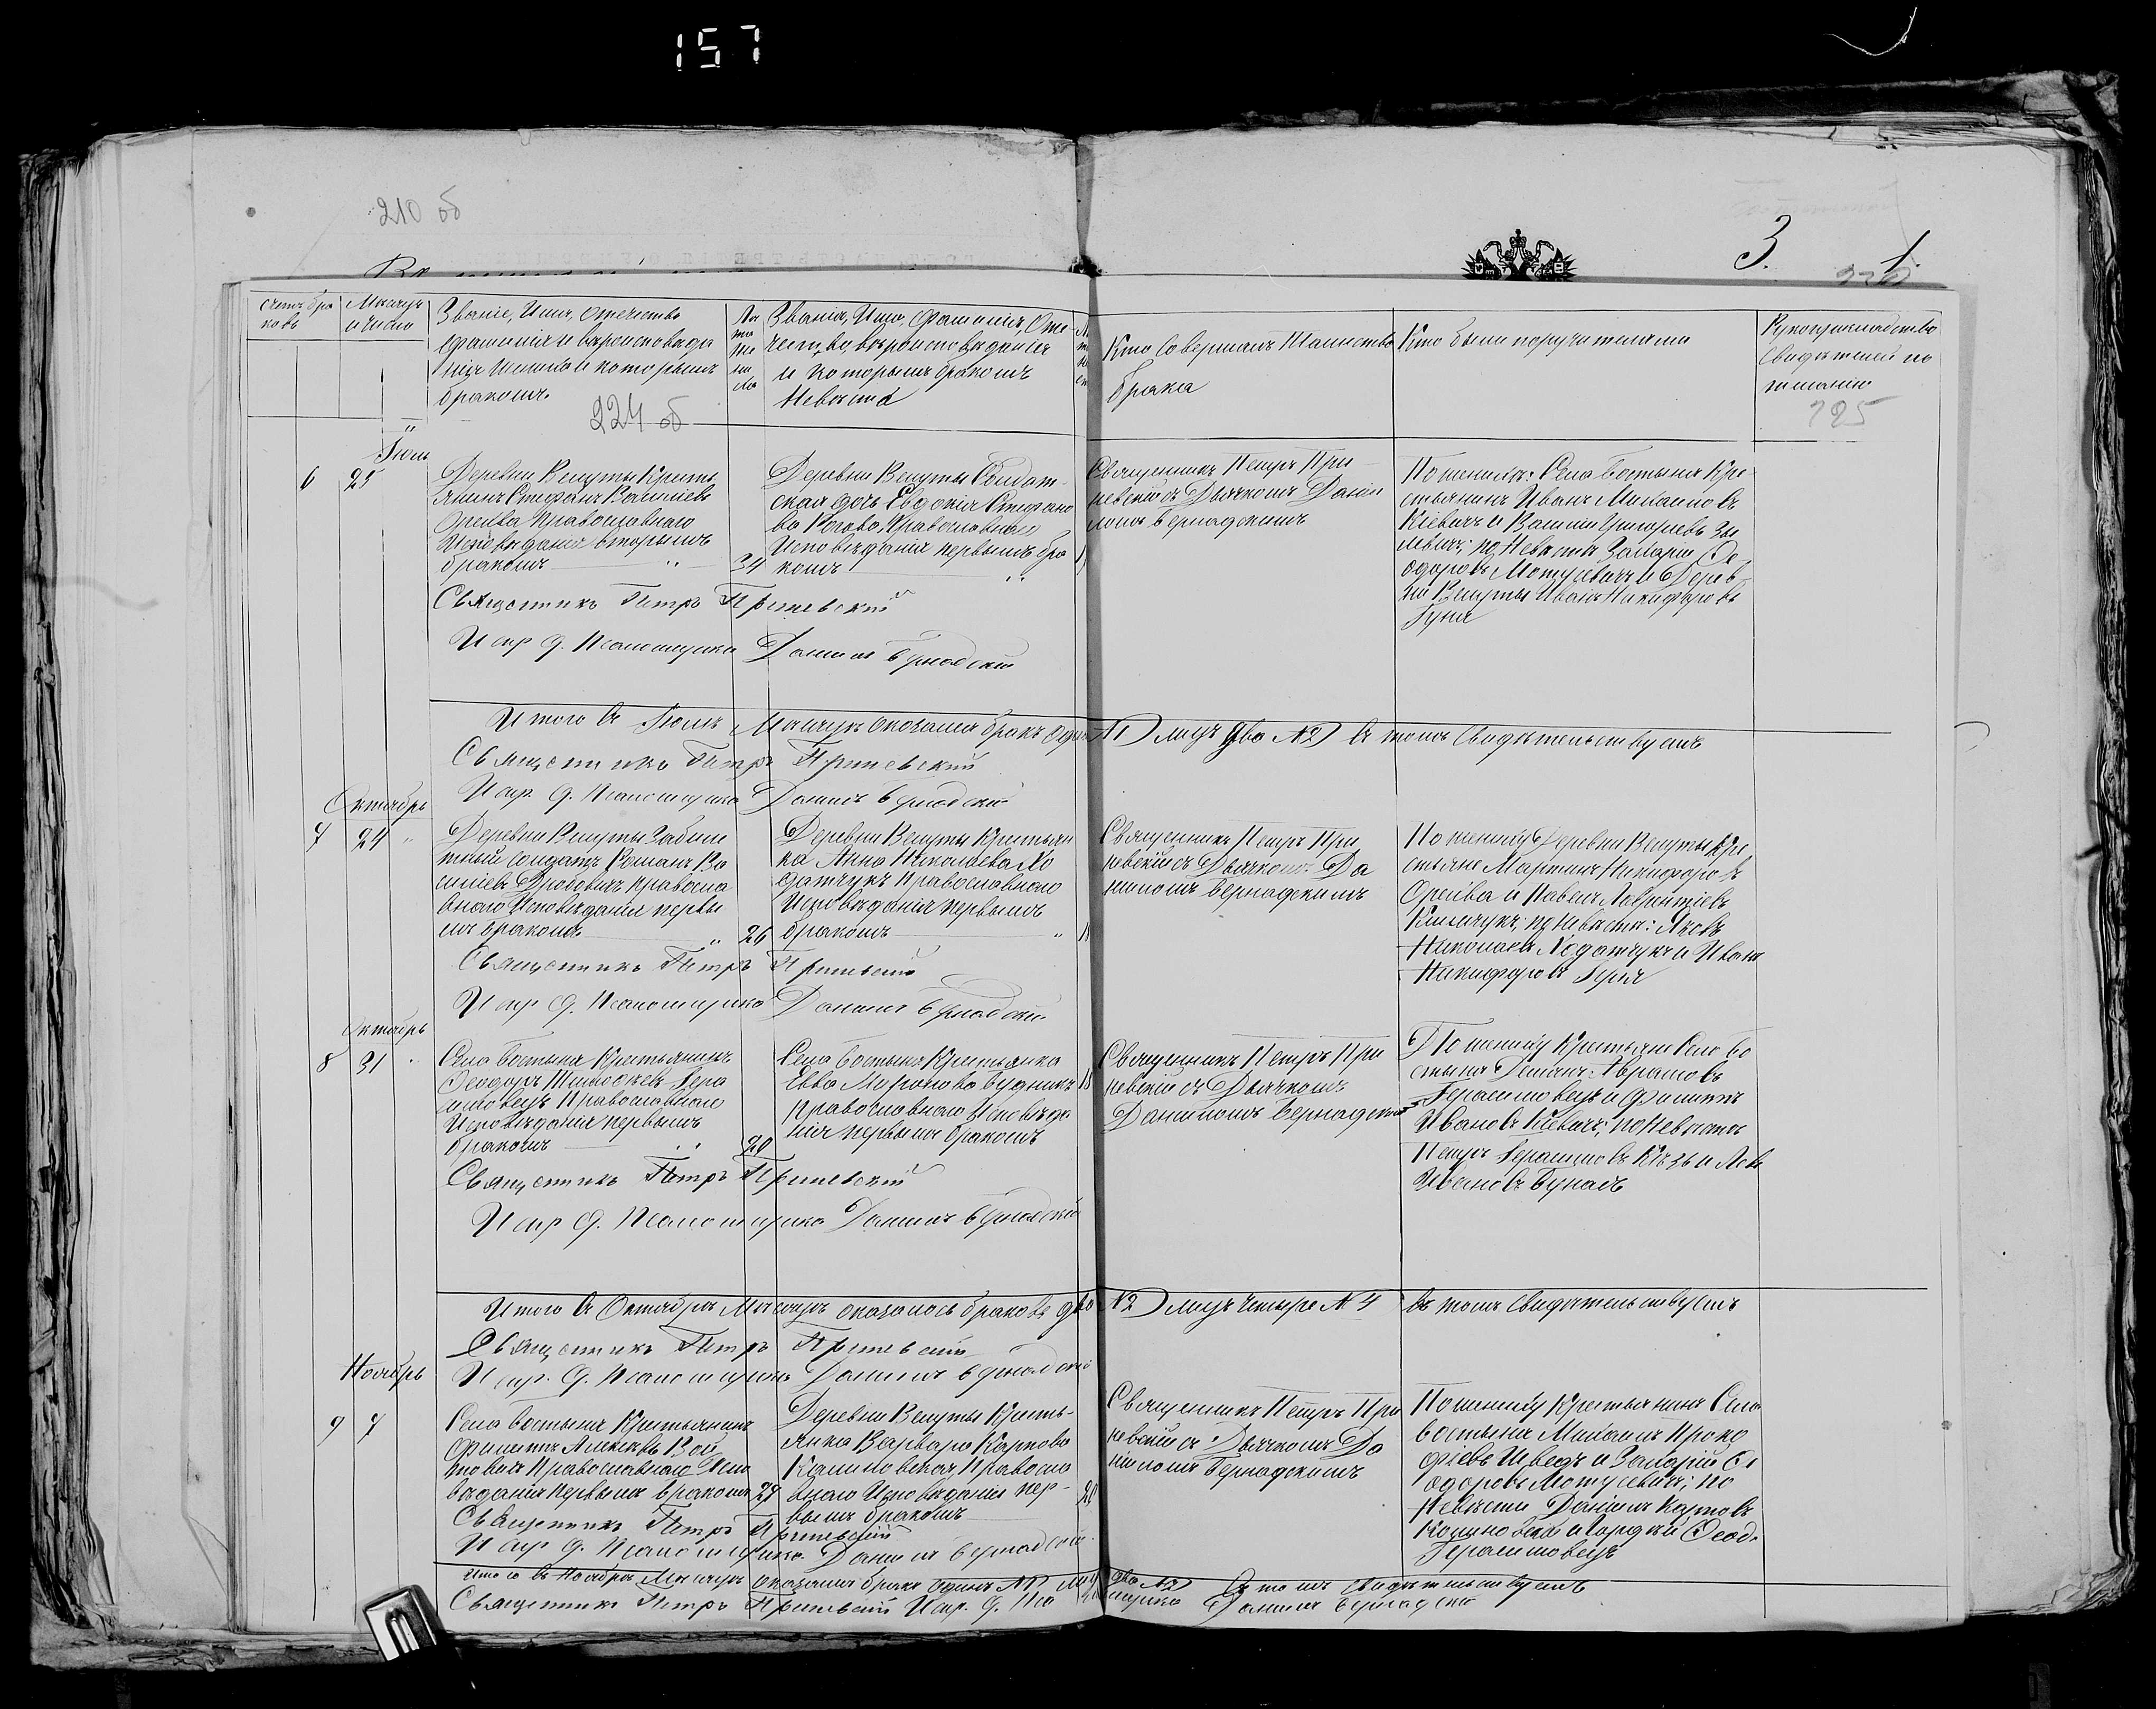 157
210 об
3. 1.
счетъ бра
ковъ
Мѣсяцъ
и число
Званіе, Имя, Отечество
фамилія и вѣроисповѣда
нія жениха и которымъ
бракомъ.
224 об
Званія, Имя, Фамилія, Оте-
чество, вѣроисповѣданія
и которымъ бракомъ
Невѣста
Кто совершалъ Таинство
брака
Кто были поручителями
Рукоприкладство
свидѣтелей по
желанію
125
Іюль
6 25
Деревни Велуты Кресть
янинъ Стефанъ Василіевъ
Православнаго
Исповѣданія вторымъ
бракомъ 34
Деревни Велуты Солдат-
ская дочь Евдокія Стефано
ва Православнаго
Исповѣданія первымъ бра
комъ
Священникъ Петръ При
невскій съ Дьячкомъ Даніи
ломъ Бернадскимъ
По женихѣ: Села Бостыня Кре
стьянинъ Иванъ
Кіевичъ и Василій Григоріевъ
по Невѣстѣ Захарій Ѳе
одоровъ Мотусевичъ и Дерев
ни Велуты Иванъ Никифоровъ
Священникъ Петръ Приневскій
Испр. д. Псаломщика Даніилъ Бернадскій
Итого въ Іюлѣ Мѣсяцѣ оказался бракъ одинъ №1 лицъ два №2 въ томъ свидѣтельствуемъ
Священникъ Петръ Приневскій
Испр. д. Псаломщика Даніилъ Бернадскій
Октябрь
7 24
Деревни Велуты
солдатъ Романъ Ва
силіевъ Дробовичъ Правосла
внаго Исповѣданія первы
мъ бракомъ 26
Деревни Велуты Крестьян
ка Анна Николаева Хо
датчукъ Православнаго
Исповѣданія первымъ
бракомъ
Священникъ Петръ При
невскій съ Дьячкомъ Да
ніиломъ Бернадскимъ
По женихѣ Деревни Велуты Кре
стьяне Мартинъ Никифоровъ
и Павелъ Лаврентіевъ
по Невѣстѣ: Яковъ
Николаевъ Ходатчукъ и Иванъ
Никифоровъ
Священникъ Петръ Приневскій
Испр. д. Псаломщика Даніилъ Бернадскій
Октябрь
8 31
Села Бостыня Крестьянинъ
Ѳеодоръ Тимоѳеевъ Гера
симовецъ Православнаго
Исповѣданія первымъ
бракомъ 20
Села Бостыня Крестьянка
Евва Миронова Будникъ 18
Православнаго Исповѣда
нія первымъ бракомъ
Священникъ Петръ При
невскій съ Дьячкомъ
Даніиломъ Бернадскимъ
По женихѣ Крестьяне Села Бо
стыня Авраамовъ
Герасимовецъ и Филиппъ
Ивановъ Кіевичъ; по Невѣстѣ
Петръ Герасимовъ и
Ивановъ
Священникъ Петръ Приневскій
Испр. д. Псаломщика Даніилъ Бернадскій
Итого въ Октябрѣ Мѣсяцѣ оказалось браковъ два №2 лицъ четыре №4 въ томъ свидѣтельствуемъ
Священникъ Петръ Приневскій
Испр. д. Псаломщика Даніилъ Бернадскій
Ноябрь
9 7
Села Бостыня Крестьянинъ
Филиппъ Алексѣевъ Вой
товичъ Православнаго Испо
вѣданія первымъ бракомъ 27
Деревни Велуты Кресть-
янка Варвара Карпова
Калиновская, Правосла
внаго Исповѣданія пер-
вымъ бракомъ
Священникъ Петръ При
невскій съ Дьячкомъ Да
ніиломъ Бернадскимъ
По женихѣ Крестьяне Села
Бостыня Михаилъ Проко
фіевъ Шведъ и Захарій Ѳе
одоровъ Мотусевичъ; по
Невѣстѣ Даніилъ Карповъ
Ѳеод.
Герасимовецъ
Священникъ Петръ Приневскій
Испр. д. Псаломщика Даніилъ Бернадскій
Итого въ Ноябрѣ Мѣсяцѣ оказался бракъ одинъ №1 лицъ два №2 въ томъ свидѣтельствуемъ
Священникъ Петръ Приневскій Испр. д. Псаломщика Даніилъ Бернадскій